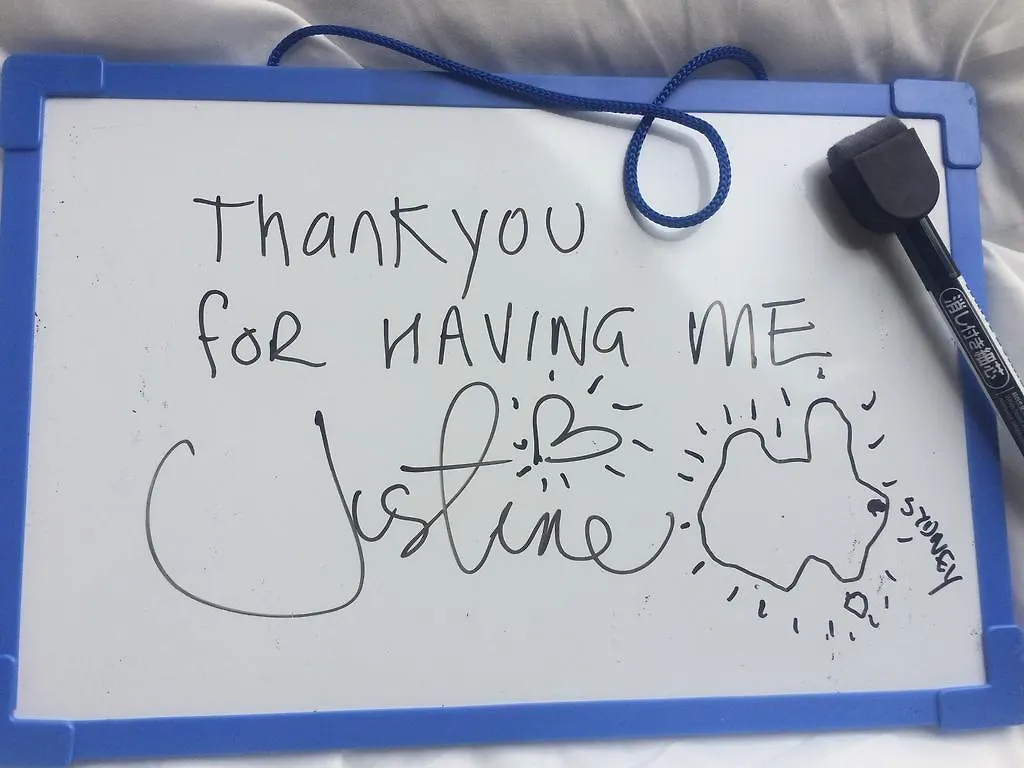 Thank you
for HAVING ME
Justine
SYDNEY
消し付き細芯